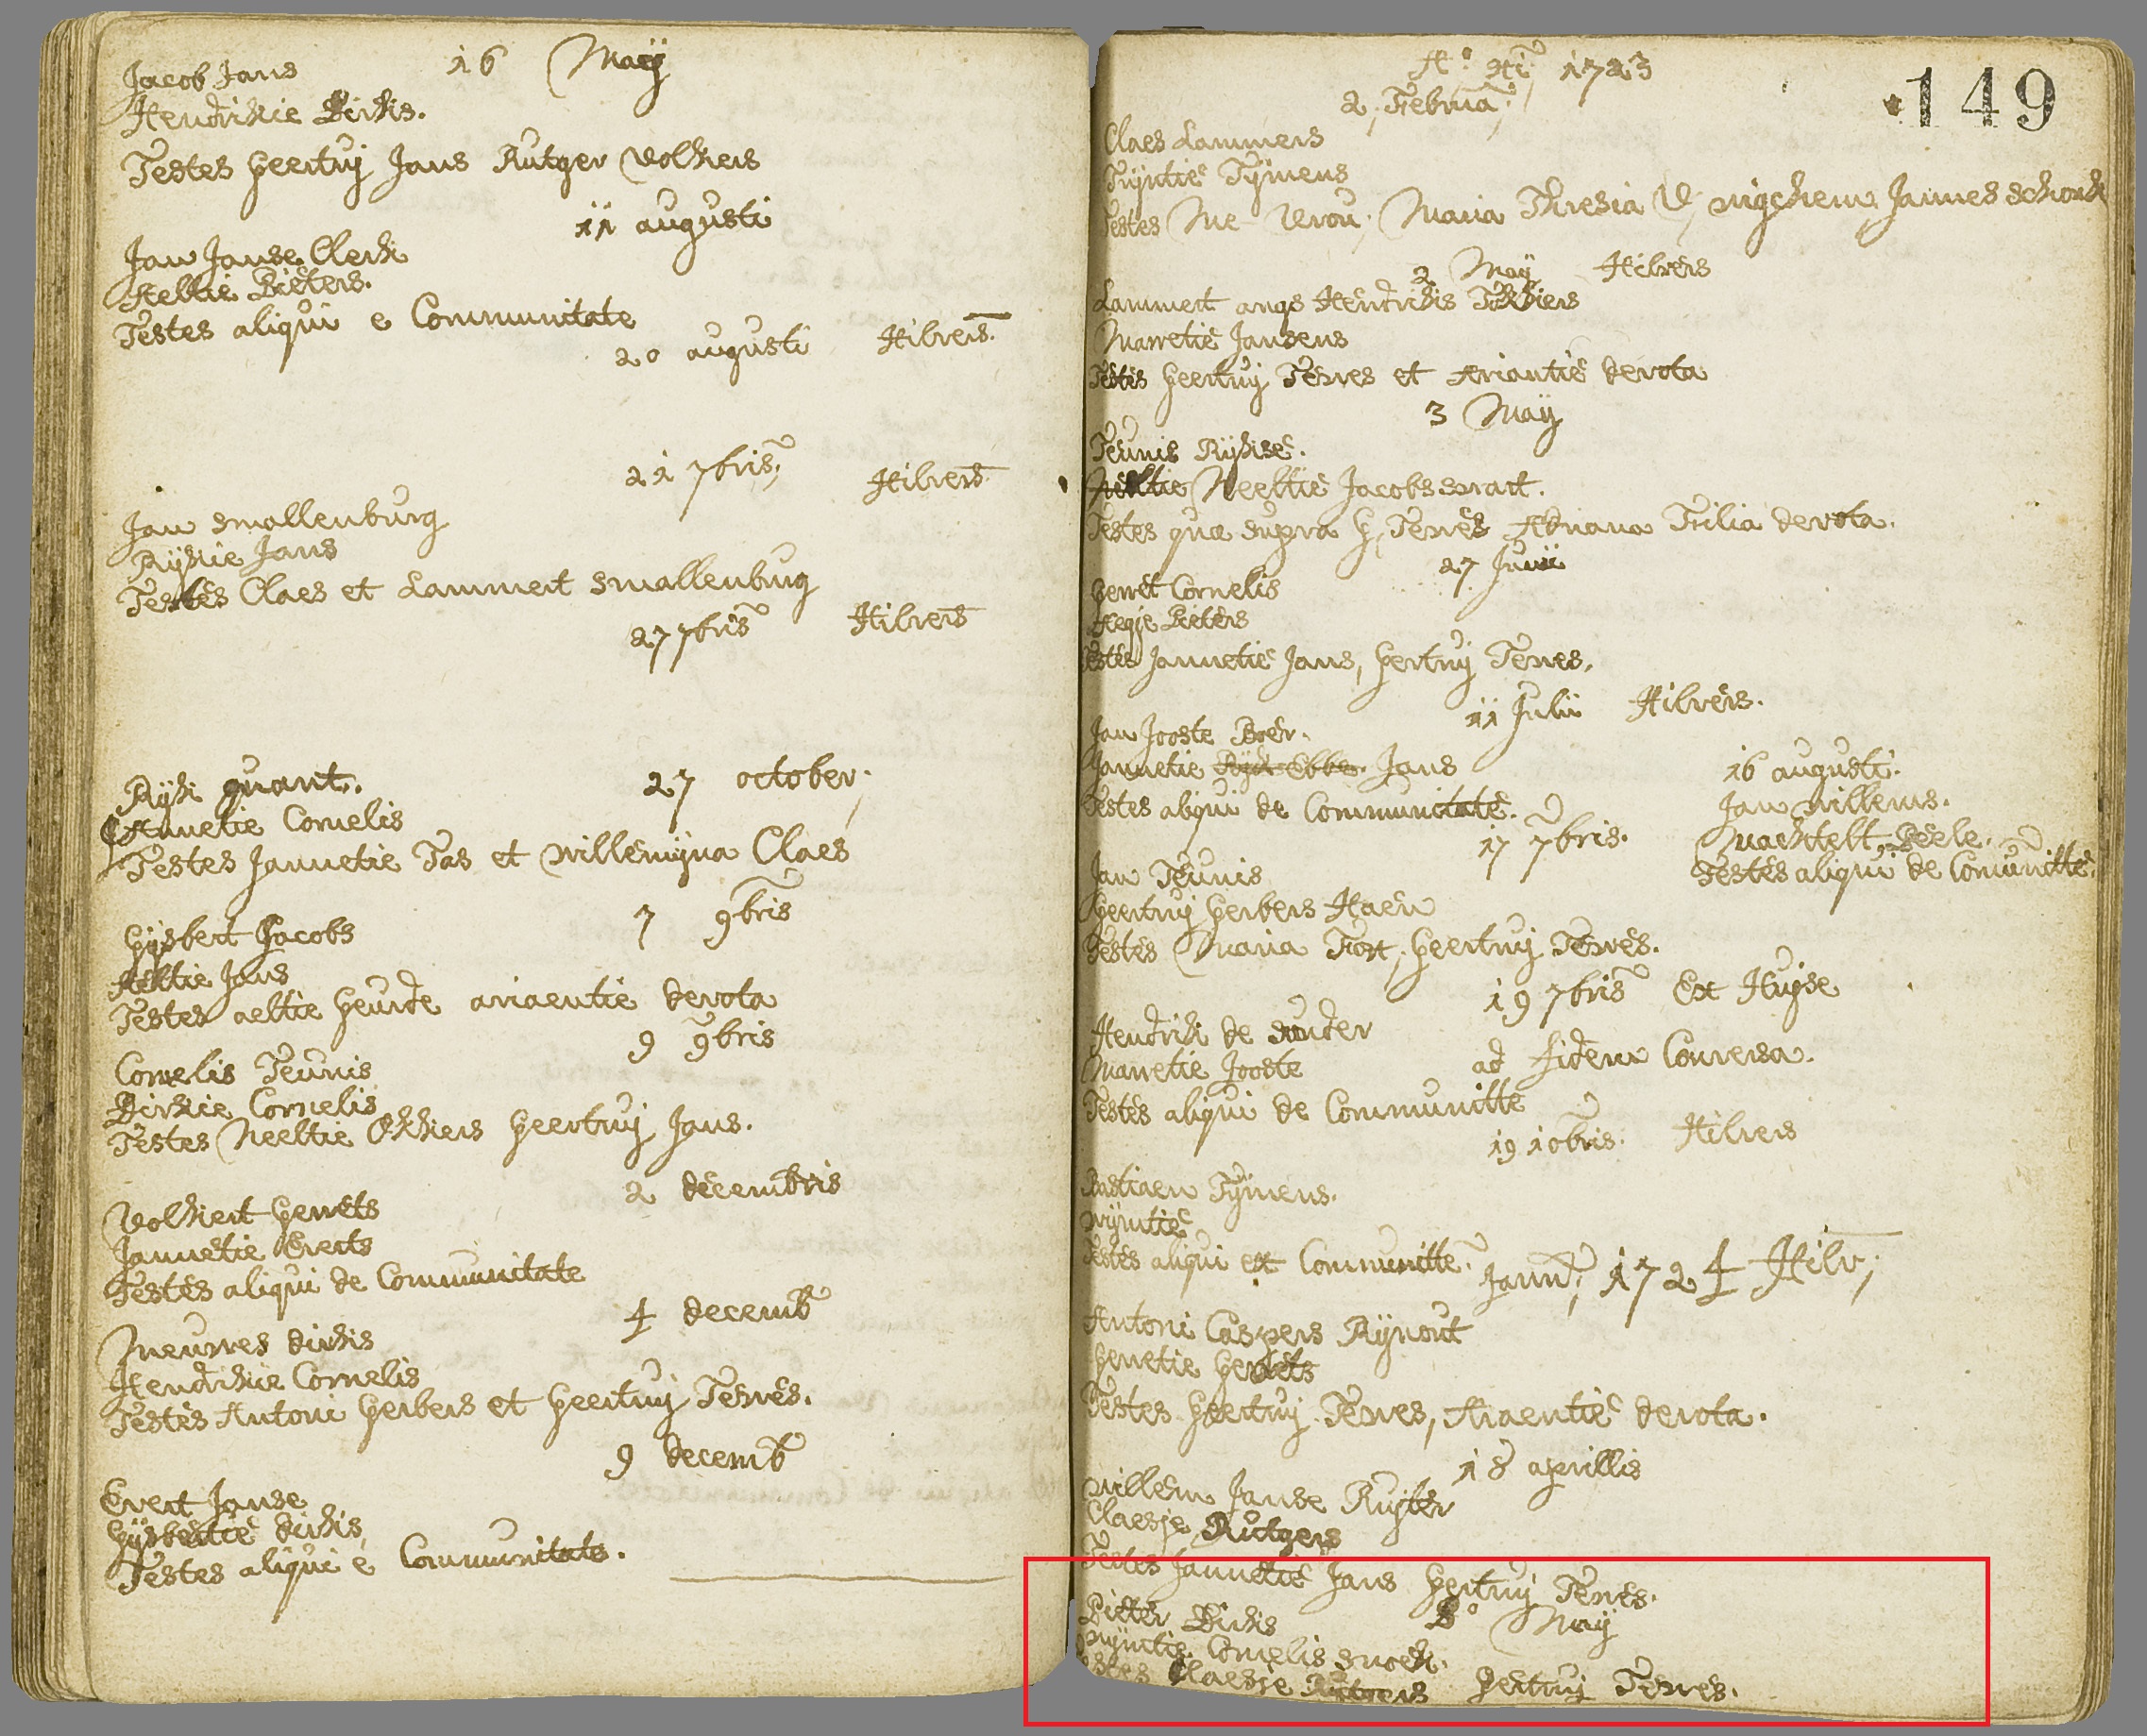 16 Maij
Jacob Jans
Hendrikie Dirkis.
Testes Geertuij Jans Rutger Volkers
11 augusti
Jan Janse Clerk
Aeltie Pieters.
Testes aliqui e Communitate
20 augusti Hilvers.
21 7bris; Hilvers
Jan smallenburg
Rijkie Jans
Testes Claes et Lammert smallenburg
27 7bris Hilvers
27 october;
Rijk quant.
Annetie Cornelis
Testes Jannetie Tas et willemijna Claes
7 9bris
Gijsbert Jacobs
Aeltie Jans
Testes aeltie Geurde ariaentie devota
9 9bris
Cornelis Teunis
Dirkie Cornelis
Testes Neeltie Okkiers Geertuij Jans.
2 decembris
Volkert Gerrets
Jannetie Everts
Testes aliqui de Communitate
4 decemb
Meuwes dirkis
Hendrikie Cornelis
Testes Antoni Gerbers et Geertuij Tewes.
9 decemb
Evert Janse
Gijsbertie dirkis
Testes aliqui e Communitate.
149
1723
2, Februa;
Claes Lammers
Trijntie Tijmens
Testes Me Vrou; Maria Thresia V, Jannes schonk
2 May Hilvers
Lammert Hendrikis
Marretie Jansens
Testes Geertuij Tewes et Ariantie devota
3 Maij
Teunis Rijkise.
Neeltie Neeltie Jacobs swart.
Testes quæ supra G, Tewes Adriana Filia devota.
27 Junii
Gerret Cornelis
Aegje Pieters
Testes Jannetie Jans, Gertuij Tewes,
11 Julii Hilvers.
Jan Jooste Boer.
Jannetie Rijk Ebbe. Jans
Testes aliqui de Communitate.
16 augusti.
Jan willems.
Machtelt Beele.
Testes aliqui de Comunitte.
17 7bris.
Jan Teunis
Geertuij Gerbers Haen
Testes Maria Fort, Geertuij Tewes.
19 7bris Ex Huijse
Hendrik de ruider
Marretie Jooste ad fidem Conversa.
Testes aliqui de Communitte
19 10bris. Hilvers
Bastiaen Tijmens.
wijntie
Testes aliqui ex Communitte.
Jann; 1724 Hilv;
Antoni Caspers Rijnout
Gerretie Gerrets
Testes Geertuij Tewes, Araentie devota.
18 aprillis
willem Janse Ruijter
Claesje Rutgers
Testes Jannetie Jans Gertuij Tewes.
8º Maij
Pieter Dirkis
wijntie Cornelis snoek.
Testes Claesje Rutgers Gertuij Tewes.